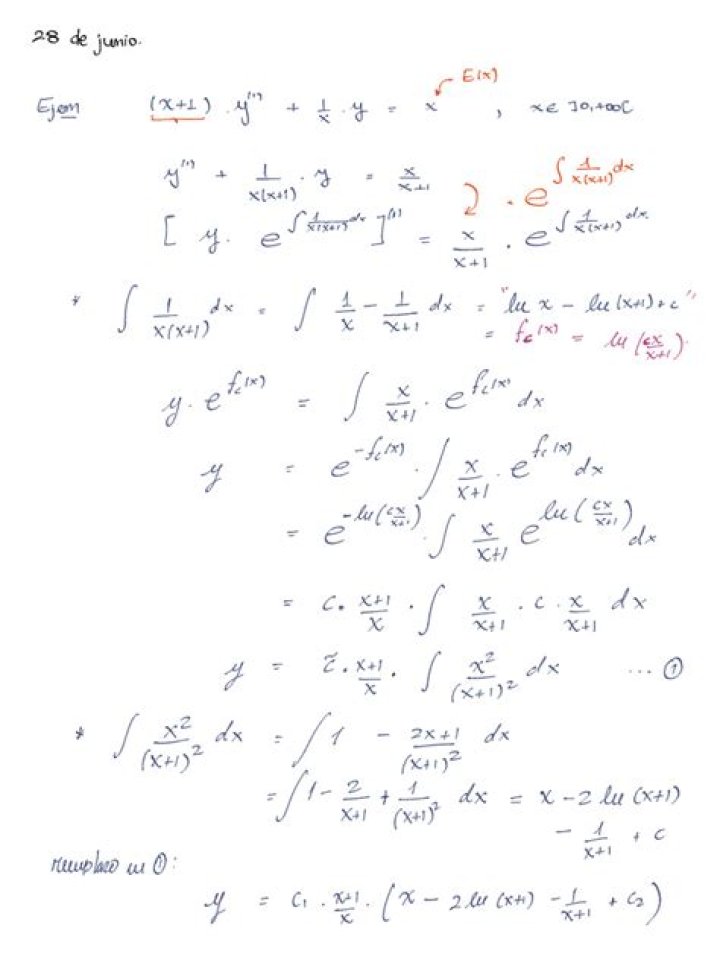 28 de junio.
E(x)
Ejem (x+1) · y⁽¹⁾ + 1/x · y = x , x ∈ ]0,+∞[
y⁽¹⁾ + 1/x(x+1) · y = x/x+1 · e^∫ 1/x(x+1) dx
[ y · e^∫ 1/x(x+1) dx ]⁽¹⁾ = x/x+1 · e^∫ 1/x(x+1) dx
* ∫ 1/x(x+1) dx = ∫ 1/x − 1/x+1 dx = "ln x − ln(x+1) + c"
= f_c(x) = ln(cx/x+1).
y · e^f_c(x) = ∫ x/x+1 · e^f_c(x) dx
y = e^−f_c(x) · ∫ x/x+1 · e^f_c(x) dx
= e^−ln(cx/x+1) · ∫ x/x+1 e^ln(cx/x+1) dx
= c · x+1/x · ∫ x/x+1 · c · x/x+1 dx
y = c̃ · x+1/x · ∫ x²/(x+1)² dx ... ①
* ∫ x²/(x+1)² dx = ∫ 1 − 2x+1/(x+1)² dx
= ∫ 1 − 2/x+1 + 1/(x+1)² dx = x − 2 ln(x+1)
− 1/x+1 + c
remplazo en ①:
y = c₁ · x+1/x · (x − 2 ln(x+1) − 1/x+1 + c₂)